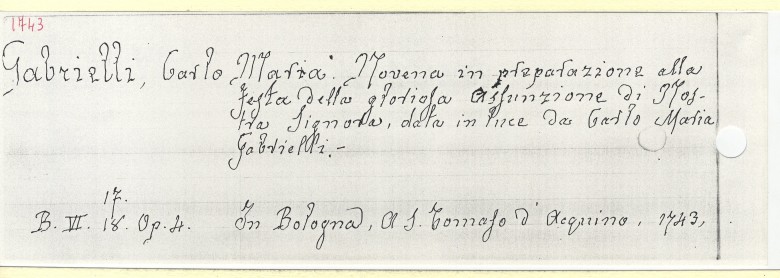 1743
Gabrielli, Carlo Maria. Novena in preparazione alla
festa della gloriosa Assunzione di Nos-
tra Signora, data in luce da Carlo Maria
Gabrielli.-
17.
B. VI. 18. Op. 4. In Bologna, A S. Tomaso d'Acquino, 1743,